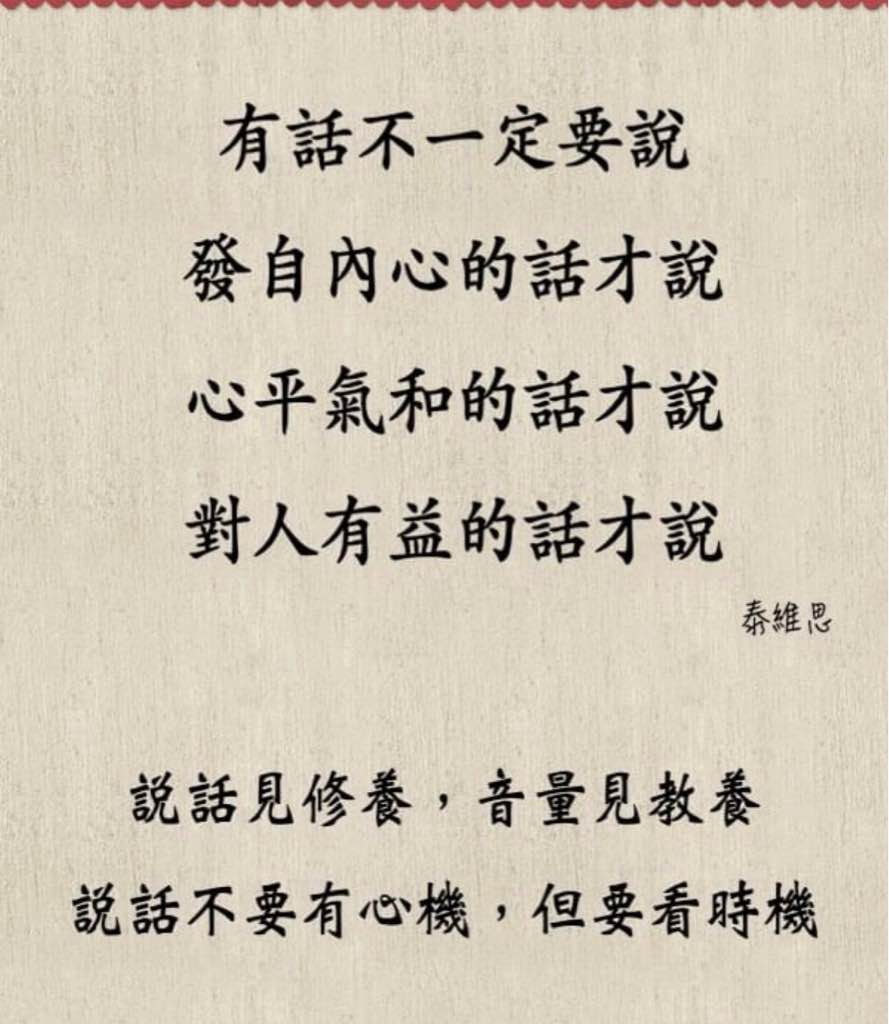 有話不一定要說
發自內心的話才說
心平氣和的話才說
對人有益的話才說
泰維思
説話見修養，音量見教養
説話不要有心機，但要看時機